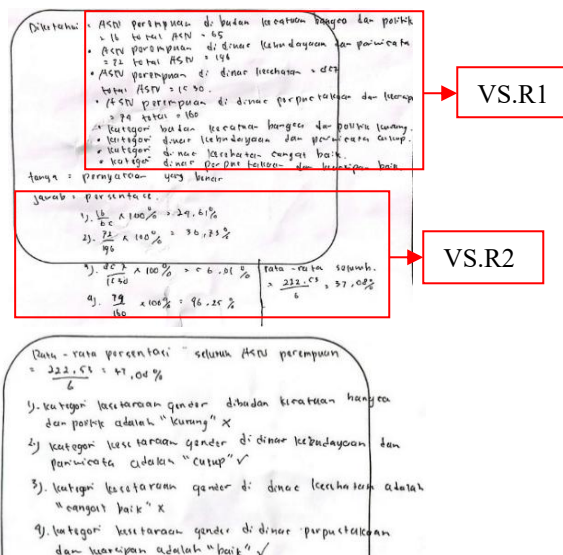 Diketahui • ASN perempuan di badan kesatuan bangsa dan politik
= 16 total ASN = 65
• ASN perempuan di dinas kebudayaan dan pariwisata
= 72 total ASN = 196
• ASN perempuan di dinas kesehatan = 857
total ASN = 1530.
• ASN perempuan di dinas perpustakaan dan kearsip
= 74 total = 160
• kategori badan kesatuan bangsa dan politik kurang.
• kategori dinas kebudayaan dan pariwisata cukup.
• kategori dinas kesehatan sangat baik.
• kategori dinas perpustakaan dan kearsipan baik.
tanya = pernyataan yang benar
jawab = persentase.
1). 16/65 x 100% = 24,61%
2). 72/196 x 100% = 36,73%
3). 857/1530 x 100% = 56,01%
4). 74/160 x 100% = 46,25%
rata-rata seluruh.
= 222,53/6 = 37,08%
VS.R1
VS.R2
Rata-rata persentasi seluruh ASN perempuan
= 222,53/6 = 37,08%
1). kategori kesetaraan gender dibadan kesatuan bangsa
dan politik adalah "kurang" x
2.) kategori kesetaraan gender di dinas kebudayaan dan
pariwisata adalah "cukup" ✓
3). kategori kesetaraan gender di dinas kesehatan adalah
"sangat baik" x
4). kategori kesetaraan gender di dinas perpustakaan
dan kearsipan adalah "baik" ✓